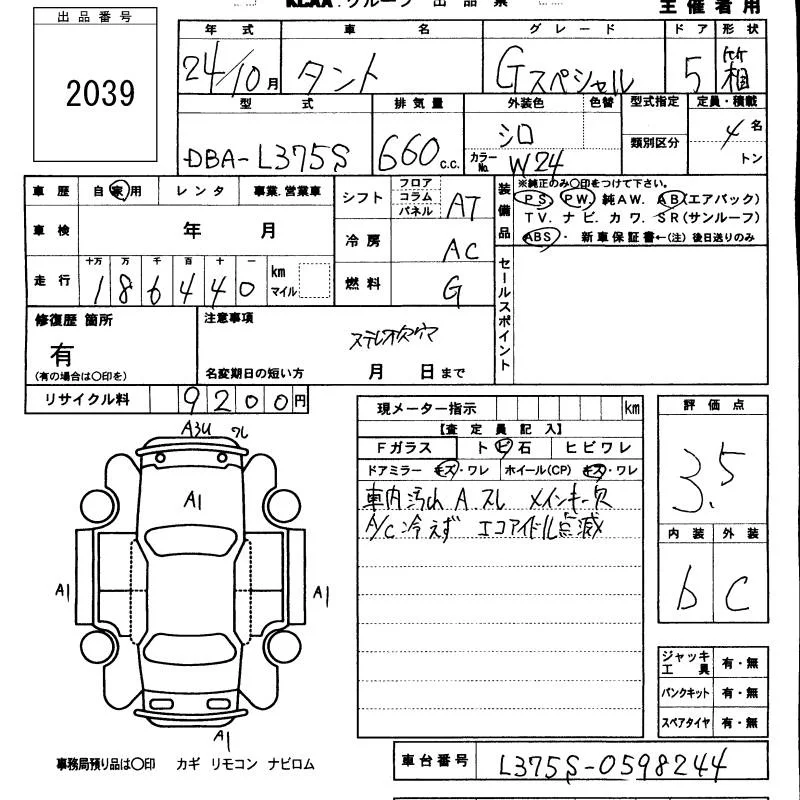 KCAA.グループ 出品票
主催者用
出品番号
2039
年式 車名 グレード ドア 形状
24/10月 タント Gスペシャル 5 箱
型式 排気量 外装色 色替 型式指定 定員・積載
DBA-L375S 660c.c. シロ 類別区分 4名
カラーNo. W24 トン
車歴 自家用 レンタ 事業.営業車
車検 年 月
走行 十万 万 千 百 十 一
186440 km マイル
シフト フロア コラム パネル AT
冷房 AC
燃料 G
装備品
※純正のみ〇印をつけて下さい。
PS. PW. 純AW. AB(エアバック)
TV. ナビ. カワ. SR(サンルーフ)
ABS・ 新車保証書←(注)後日送りのみ
セールスポイント
修復歴 箇所
有
(有の場合は〇印を)
注意事項
ステレオ欠穴
名変期日の短い方 月 日まで
リサイクル料 9200円
現メーター指示 km
【査定員記入】
Fガラス ト ビ 石 ヒビワレ
ドアミラー キズ・ワレ ホイール(CP) キズ・ワレ
車内汚れ A.スレ メインキー欠
A/C冷えず エコアイドル点滅
評価点
3.5
内装 外装
b C
ジャッキ工具 有・無
パンクキット 有・無
スペアタイヤ 有・無
A3U ワレ
A1
A1
A1
A1
事務局預り品は〇印 カギ リモコン ナビロム
車台番号 L375S-0598244